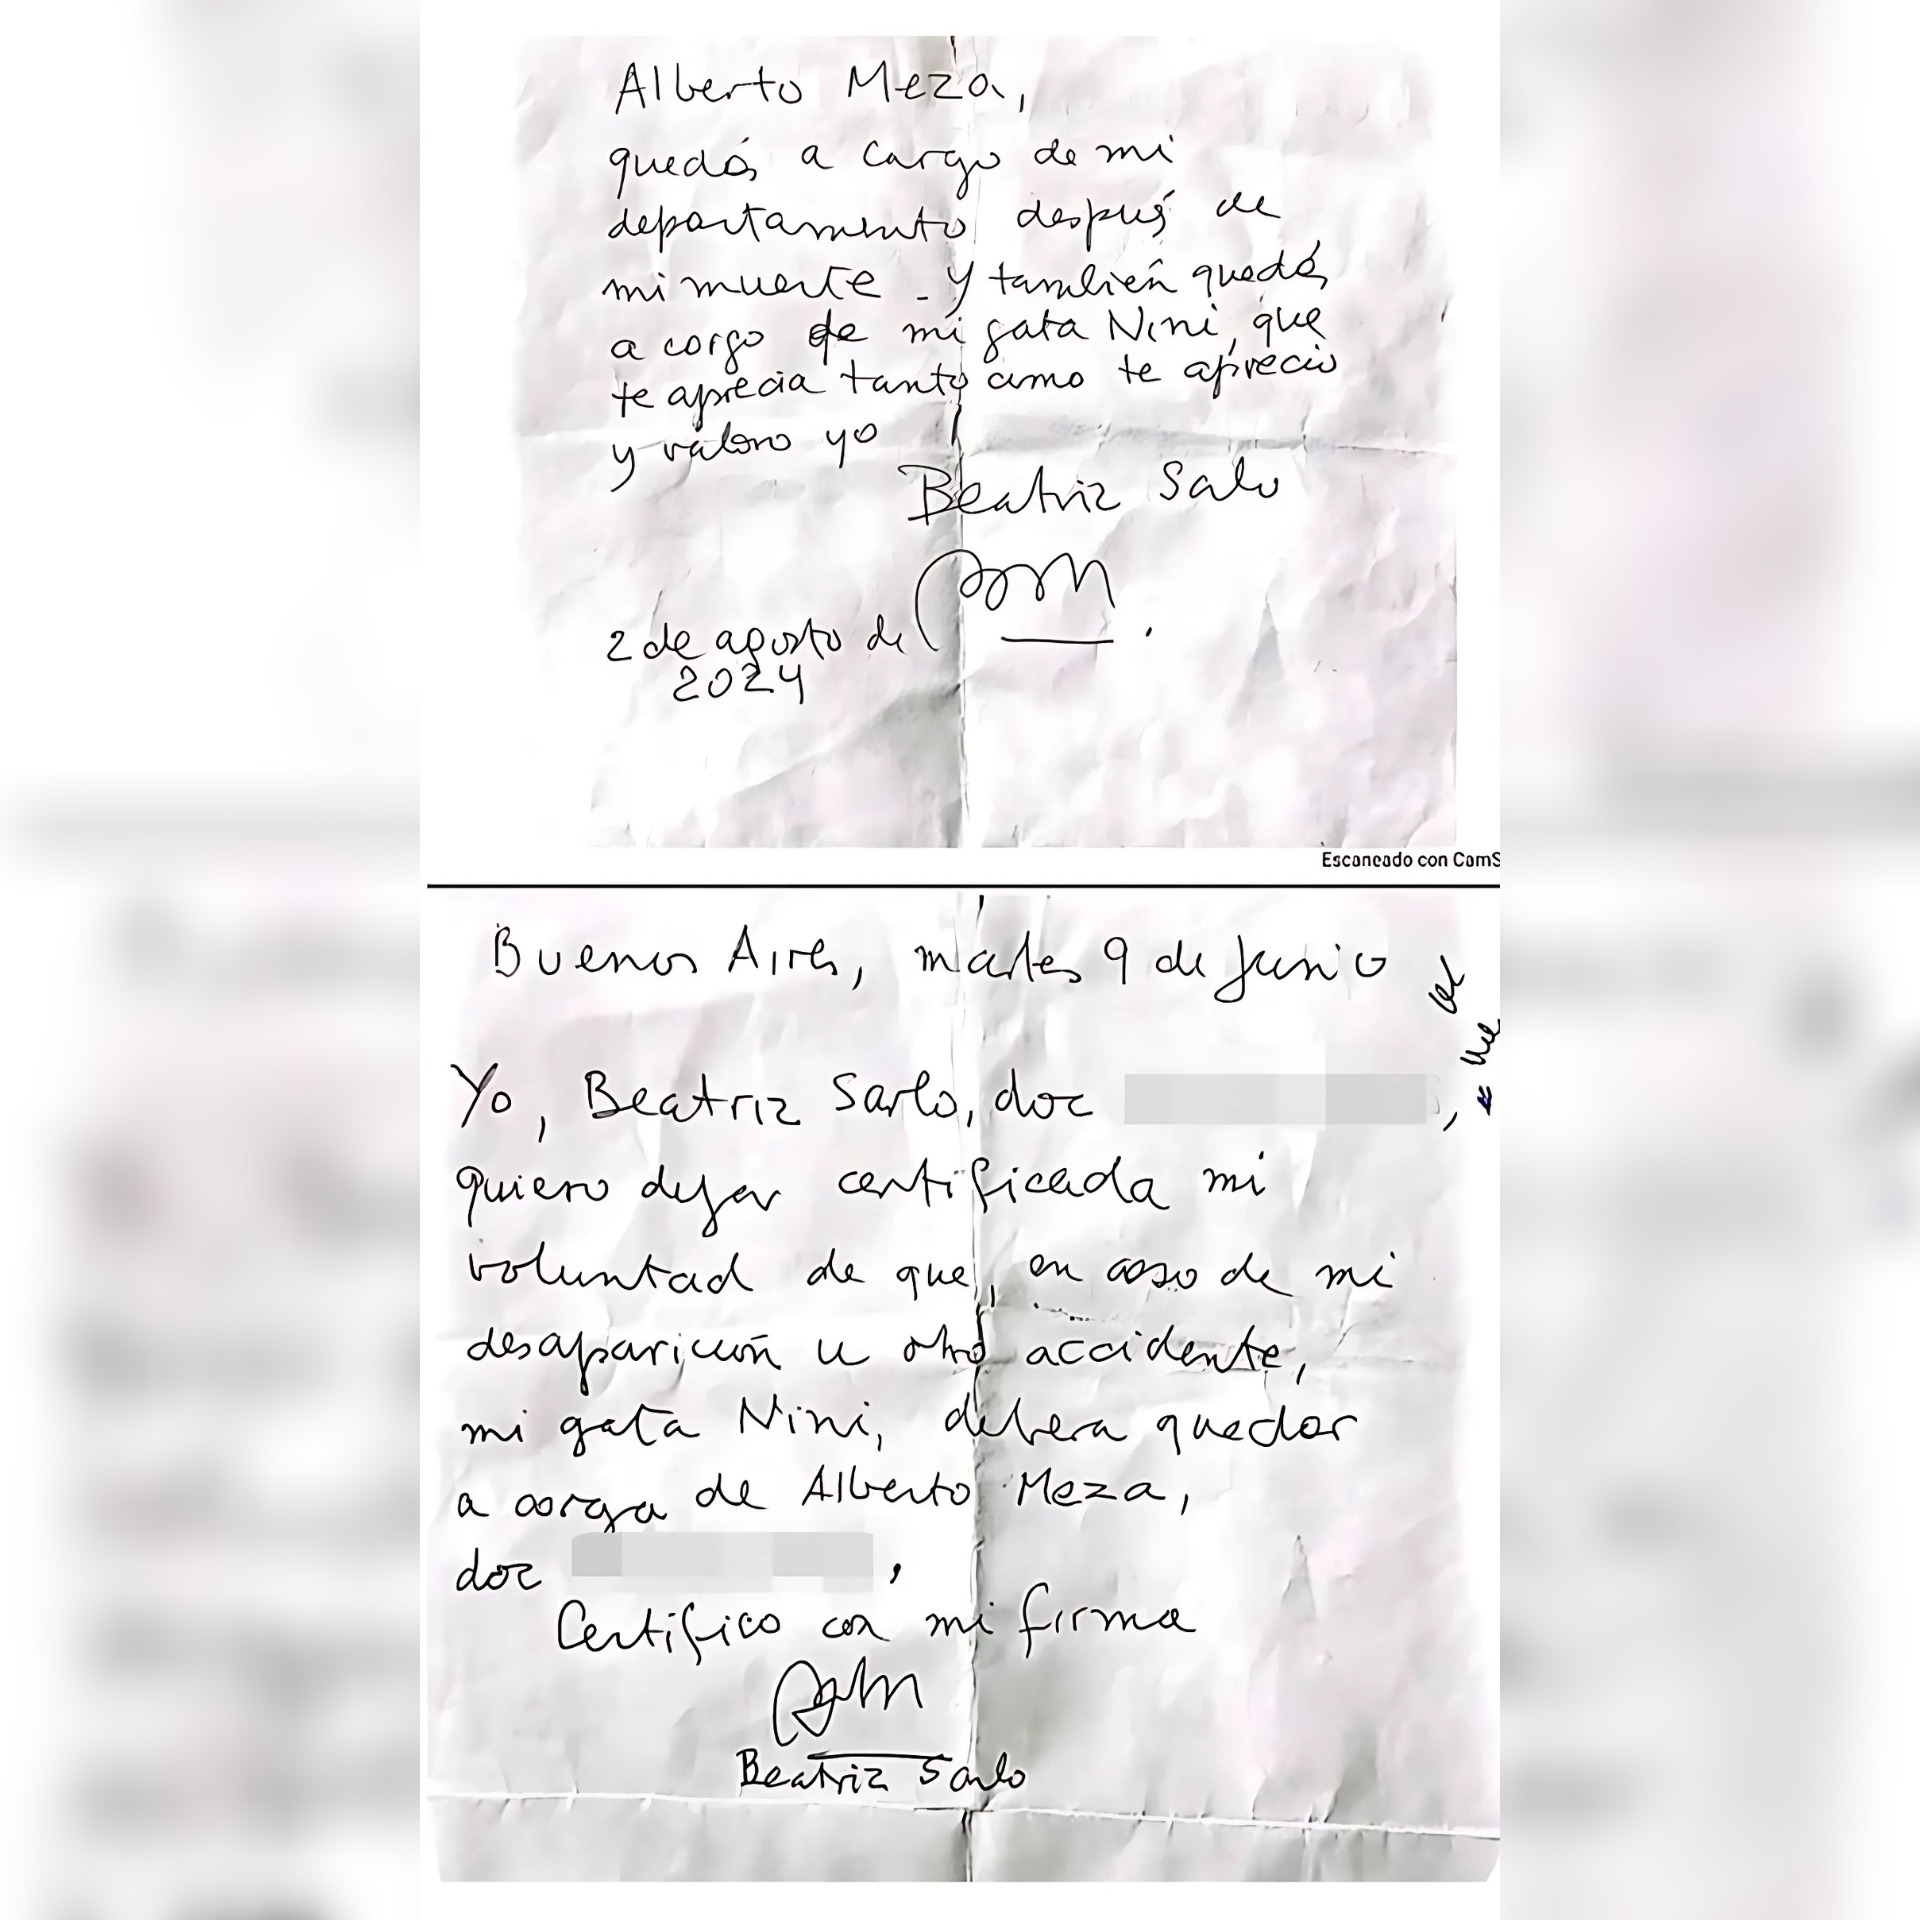 Alberto Meza,
quedás a cargo de mi
departamento después de
mi muerte - Y también quedás
a cargo de mi gata Nini, que
te aprecia tanto como te aprecio
y valoro yo
Beatriz Sarlo
2 de agosto de
2024
Escaneado con CamS
Buenos Aires, martes 9 de Junio
Yo, Beatriz Sarlo, doc
quiero dejar certificada mi
voluntad de que, en caso de mi
desaparición u otro accidente,
mi gata Nini, debera quedar
a cargo de Alberto Meza,
doc
Certifico con mi firma
Beatriz Sarlo